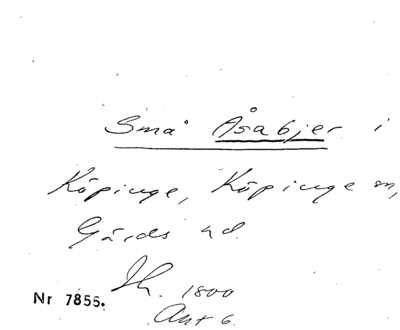 Små Åsabjer i
Köpinge, Köpinge sn,
Gärds hd.
Sk. 1800
Nr 7855.
Akt 6